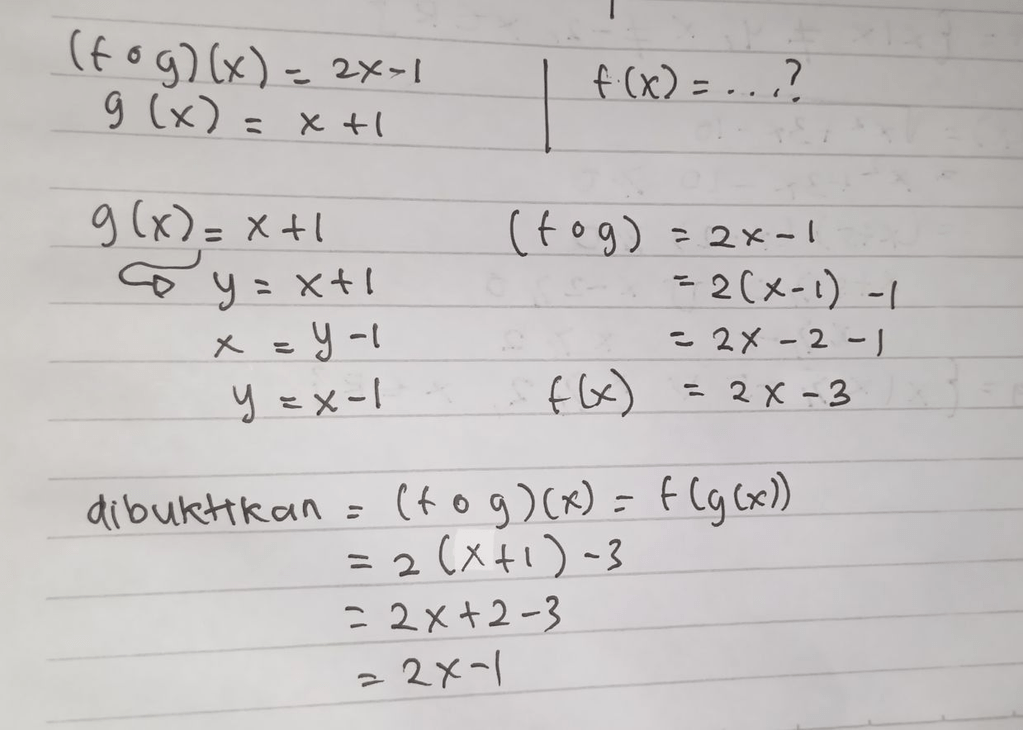 (f o g)(x) = 2x-1
g (x) = x +1
f(x) = ...?
g(x) = x +1
y = x+1
x = y -1
y = x-1
(f o g) = 2x-1
= 2(x-1) -1
= 2x - 2 -1
f(x) = 2x -3
dibuktikan = (f o g)(x) = f(g(x))
= 2 (x+1) -3
= 2x+2-3
= 2x-1